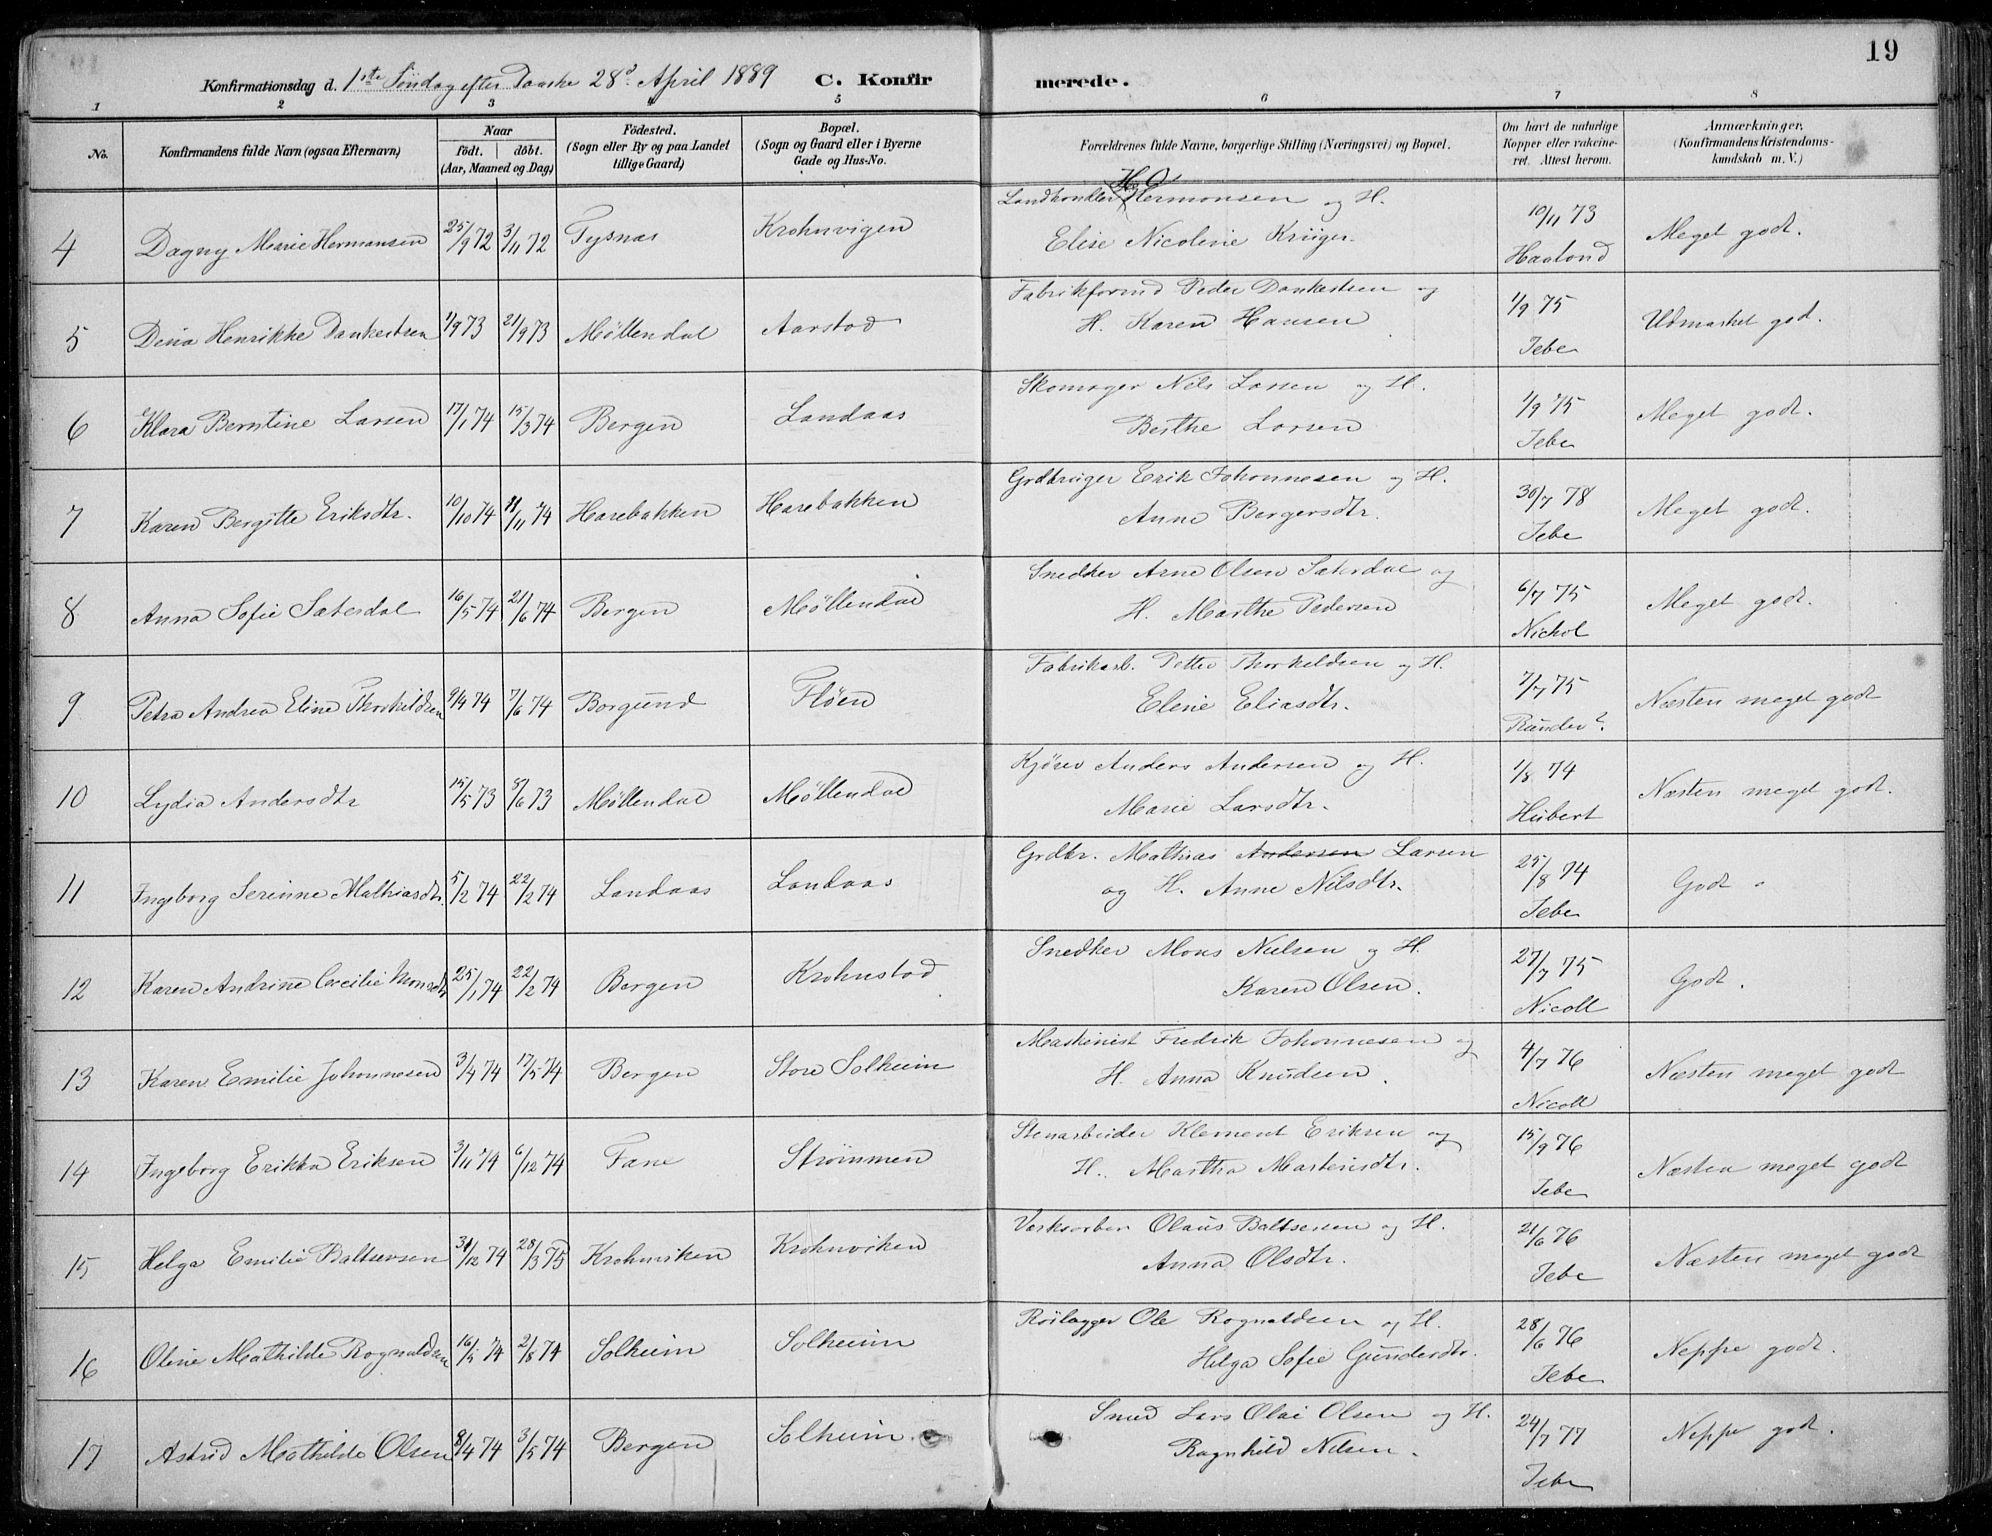 19
Konfirmationsdag d. 1ste Søndag efter Paaske 28d April 1889 C. Konfirmerede.
1 2 3 4 5 6 7 8
No. Konfirmandens fulde Navn (ogsaa Efternavn) Naar födt. döbt. (Aar, Maaned og Dag) Födested. (Sogn eller By og paa Landet tillige Gaard) Bopæl. (Sogn og Gaard eller i Byerne Gade og Hus-No. Forældrenes fulde Navne, borgerlige Stilling (Næringsvei) og Bopæl. Om havt de naturlige Kopper eller vakcineret. Attest herom. Anmærkninger. (Konfirmandens Kristendomskundskab m. V.)
4 Dagny Marie Hermansen 25/9 72 3/11 72 Tysnæs Krohnvigen Landhandler H. O. Hermansen og H. Elise Nicoline Krüger 10/11 73 Haaland Meget godt.
5 Dina Henrikke Dankertsen 1/9 73 21/9 73 Møllendal Aarstad Fabrikformd Peder Dankertsen og H. Karen Hansen 1/9 75 Jebe Udmærket god.
6 Klara Berntine Larsen 17/1 74 15/3 74 Bergen Landaas Skomager Nels Larsen og H. Berthe Larsen 1/9 75 Jebe Meget godt.
7 Karen Bergitte Eriksdtr. 10/10 74 11/11 74 Harebakken Harebakken Grdbruger Erik Johannesen og H. Anne Borgersdtr. 30/7 78 Jebe Meget godt.
8 Anna Sofie Satersdal 16/5 74 21/6 74 Bergen Møllendal Snedker Arne Olsen Satersdal og H. Marthe Pedersen 6/7 75 Nichol Meget godt.
9 Petra Andrea Eline Thorkildsen 9/4 74 7/6 74 Borgund Fløen Fabrikarb. Petter Thorkeldsen og H. Eline Eliasdtr. 7/7 75 Runder? Næsten meget godt
10 Lydia Andersdtr 15/5 73 8/6 73 Møllendal Møllendal Kjører Anders Andersen og H. Marie Larsdtr. 1/8 74 Hubert Næsten meget godt.
11 Ingeborg Serinne Mathiasdtr. 5/2 74 22/2 74 Landaas Landaas Grdbr. Mathias Andersen Larsen og H. Anne Nilsdtr. 25/8 74 Jebe Godt.
12 Karen Andrine Cecilie Monsdtr 25/1 74 22/2 74 Bergen Krohnstad Snedker Mons Nielsen og H. Karen Olsen. 27/7 75 Nicoll Godt.
13 Karen Emilie Johannesen 3/4 74 17/5 74 Bergen Store Solheim Maskinist Fredrik Johannesen og H. Anna Knudsen. 4/7 76 Nicoll Næsten meget godt
14 Ingeborg Erikka Eriksen 3/11 74 6/12 74 Fane Strømmen Stenarbeider Klement Eriksen og H. Martha Martinsdtr. 15/9 76 Jebe Næsten meget godt
15 Helga Emilie Baltsersen 31/12 74 28/3 75 Krohnviken Krohnviken Værksarber Olaus Baltsersen og H. Anna Olsdtr. 21/6 76 Jebe Næsten meget godt
16 Oline Mathilde Rognaldsen 16/5 74 2/8 74 Solheim Solheim Rørlægger Ole Rognaldsen og H. Helga Sofie Gunderdtr. 28/6 76 Jebe Neppe godt.
17 Astrid Mathilde Olsen 8/4 74 3/5 74 Bergen Solheim Smed Lars Olai Olsen og H. Ragnhild Nelsen. 24/7 77 Jebe Neppe godt.